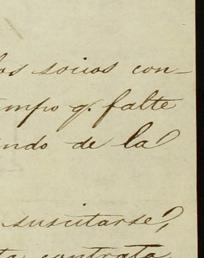 los socios con-
empo q. falte
ando de la
suscitarse,
ta contrata